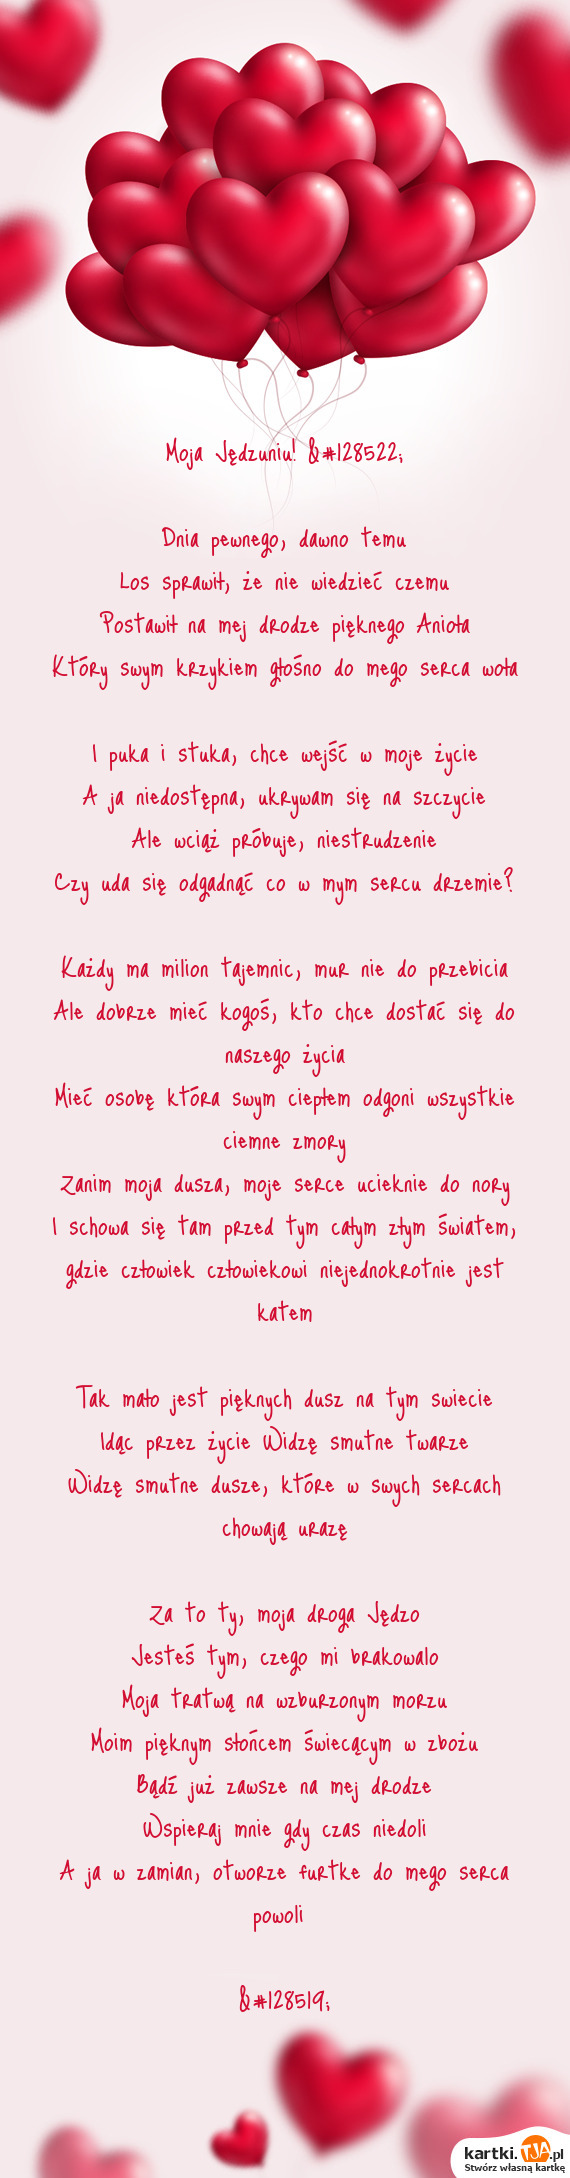 Moja Jędzuniu! &#128522;
Dnia pewnego, dawno temu
Los sprawił, że nie wiedzieć czemu
Postawił na mej drodze pięknego Anioła
Który swym krzykiem głośno do mego serca woła
I puka i stuka, chce wejść w moje życie
A ja niedostępna, ukrywam się na szczycie
Ale wciąż próbuje, niestrudzenie
Czy uda się odgadnąć co w mym sercu drzemie?
Każdy ma milion tajemnic, mur nie do przebicia
Ale dobrze mieć kogoś, kto chce dostać się do
naszego życia
Mieć osobę która swym ciepłem odgoni wszystkie
ciemne zmory
Zanim moja dusza, moje serce ucieknie do nory
I schowa się tam przed tym całym złym światem,
gdzie człowiek człowiekowi niejednokrotnie jest
katem
Tak mało jest pięknych dusz na tym swiecie
Idąc przez życie Widzę smutne twarze
Widzę smutne dusze, które w swych sercach
chowają urazę
Za to ty, moja droga Jędzo
Jesteś tym, czego mi brakowalo
Moja tratwą na wzburzonym morzu
Moim pięknym słońcem świecącym w zbożu
Bądź już zawsze na mej drodze
Wspieraj mnie gdy czas niedoli
A ja w zamian, otworze furtke do mego serca
powoli
&#128519;
kartki.TJA.pl
Stwórz własną kartkę